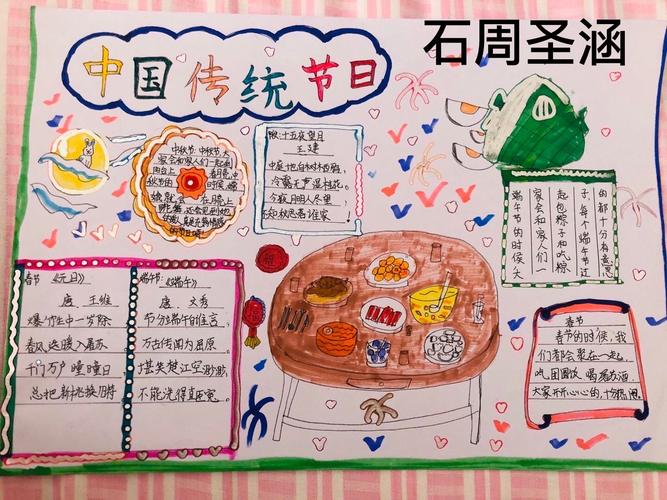 石周圣涵
中国传统节日
中秋节:中秋节,大
家会和家人们一起到
阳台上
秋十五夜望月
王建
中庭地白树木西雅,
冷露无声湿桂花。
今夜月明人尽望,
不知秋思落谁家
端午节的时候,大
家会和家人们一
起包粽子和吃粽
子,每个端午节过
的都十分有意思
春节《元日》
唐 王维
爆竹生中一岁除
春风送暖入屠苏
千门万户曈曈日,
总把新桃换旧符
端午节:《端午》
唐 文秀
节分端午自谁言,
万古传闻为屈原。
堪笑楚江空渺渺,
不能洗得直臣冤。
春节
春节的时候,我
们都会聚在一起,
吃团圆饭,喝屠苏酒,
大家开开心心的,十分热闹
福